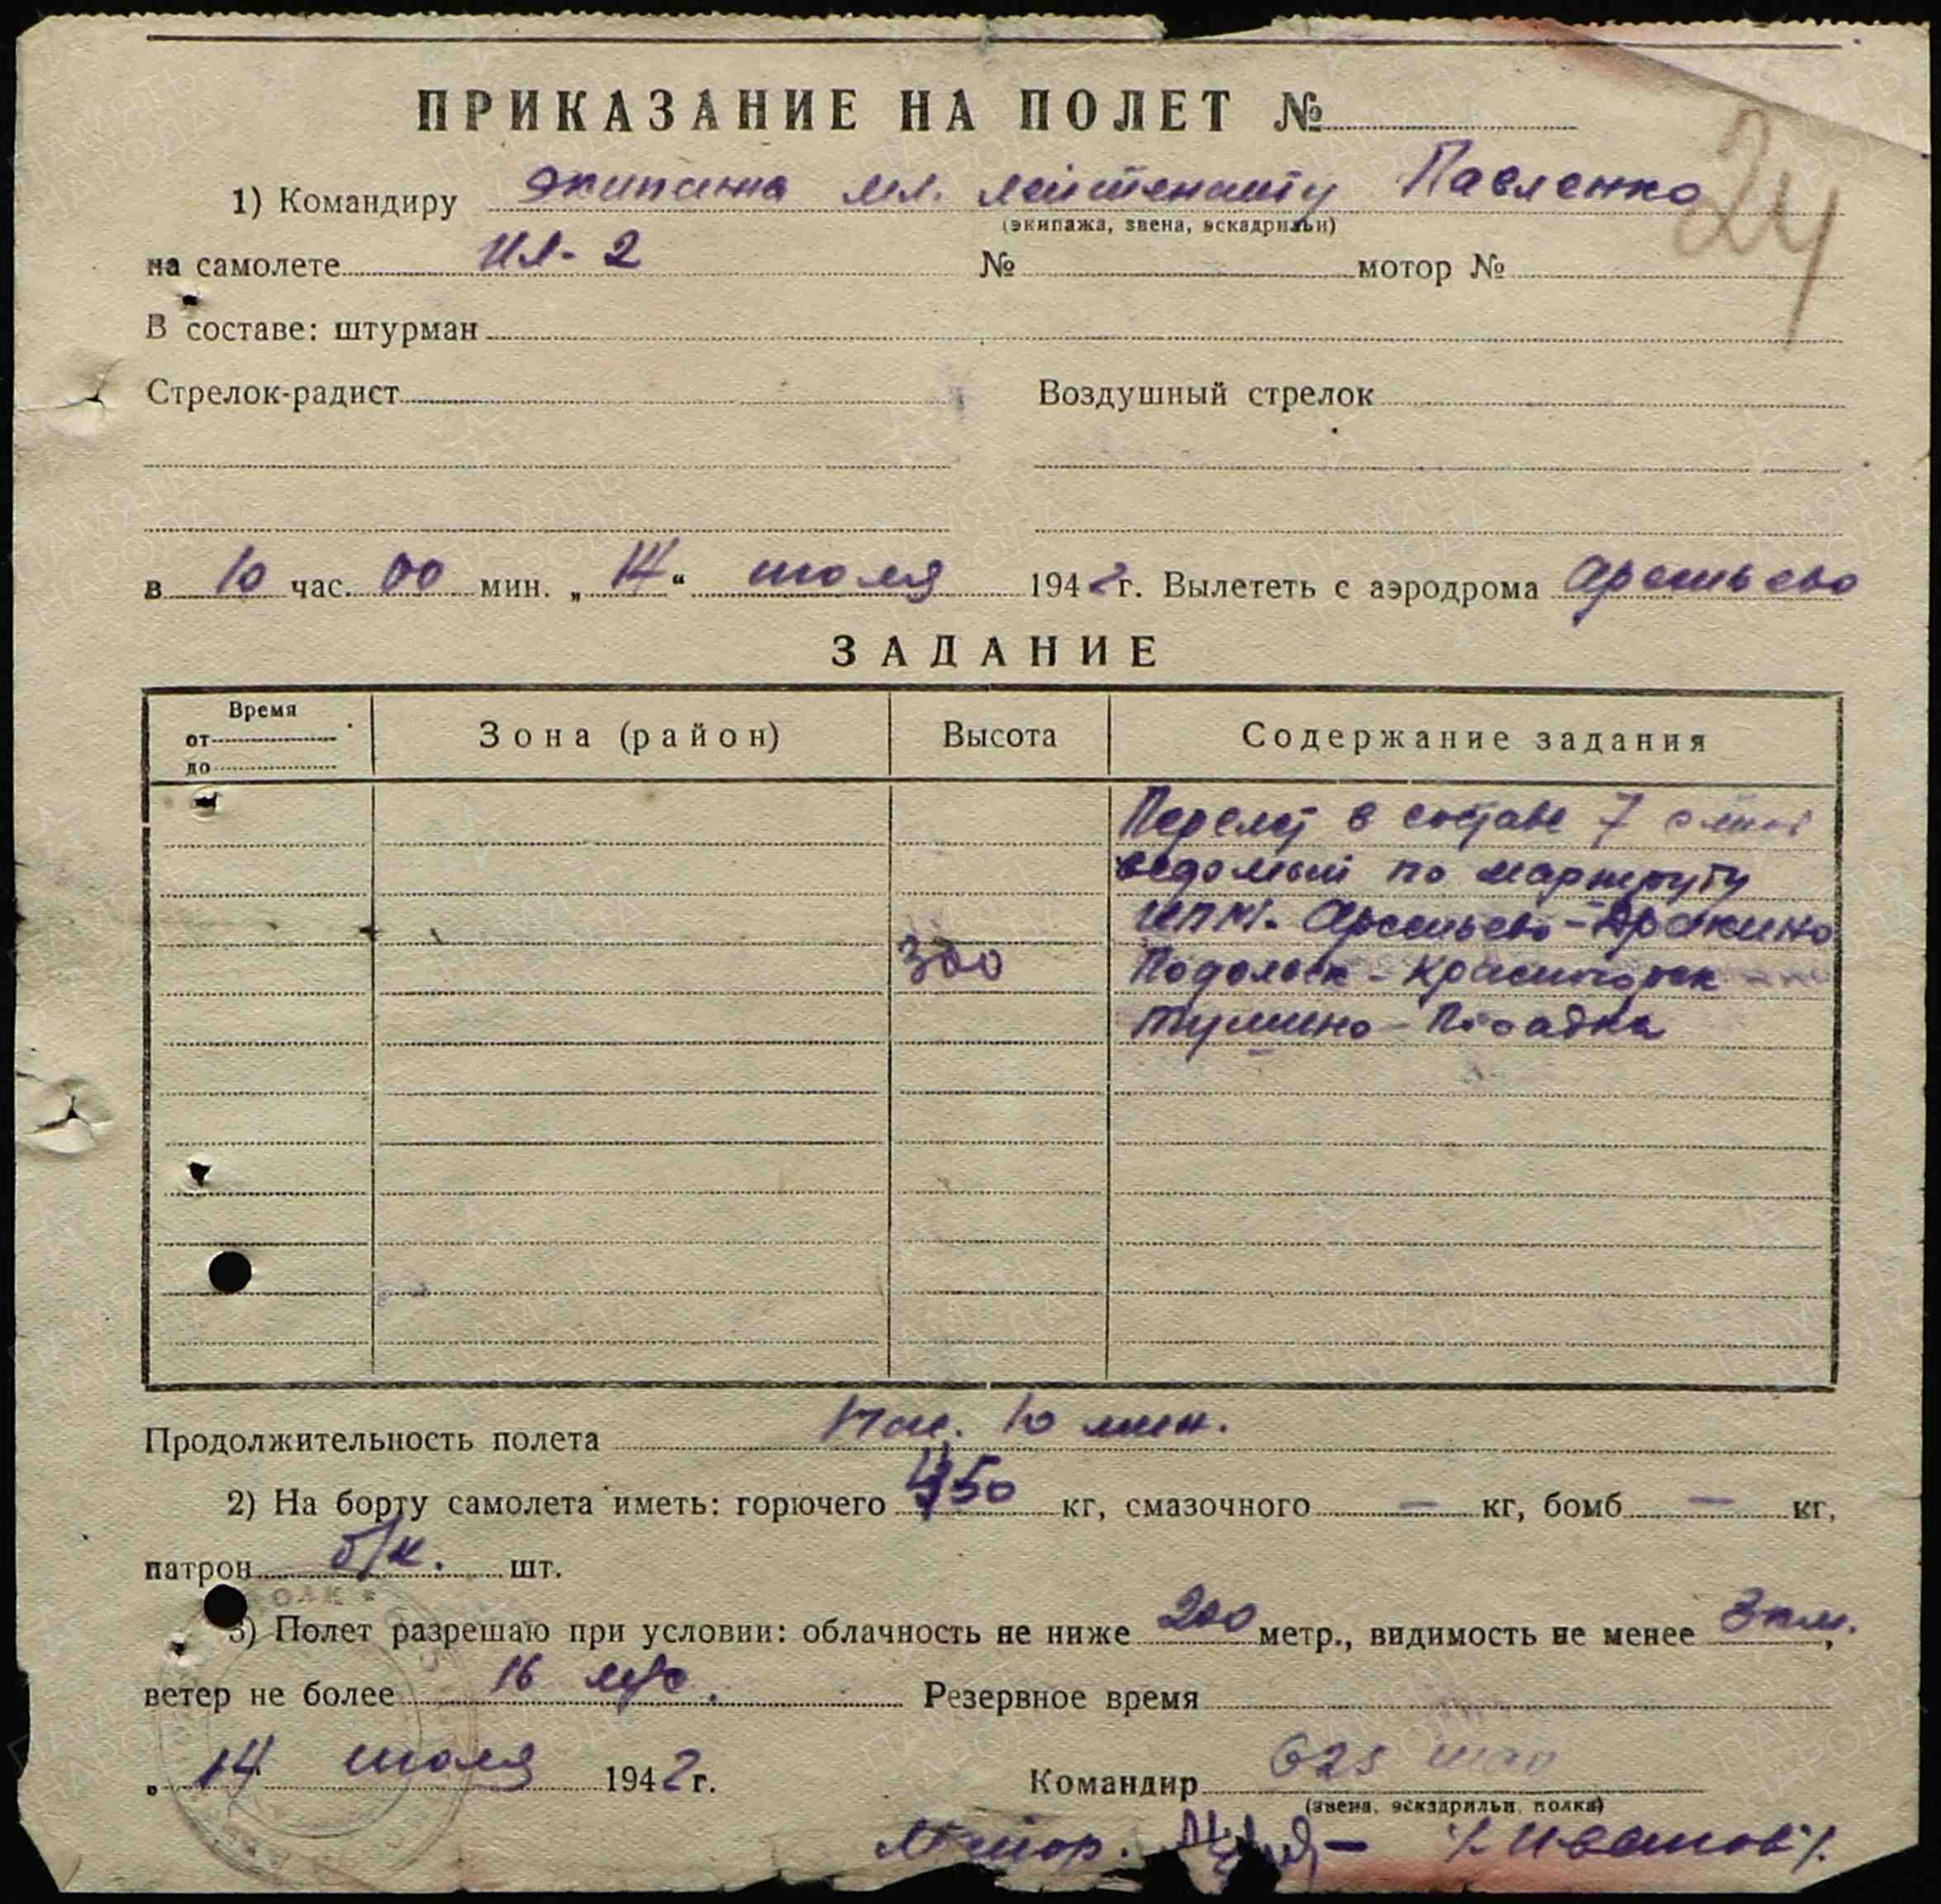 ПРИКАЗАНИЕ НА ПОЛЕТ №
24
1) Командиру экипажа мл. лейтенанту Павленко
(экипажа, звена, эскадрильи)
на самолете Ил-2 № мотор №
В составе: штурман
Стрелок-радист Воздушный стрелок
в 10 час. 00 мин. „14“ июля 1942 г. Вылететь с аэродрома Арсеньево
ЗАДАНИЕ
Время
от
до
Зона (район) Высота Содержание задания
Перелет в составе 7
ведомый по маршруту
ИПМ. Арсеньево - Дракино
300 Подольск - Красногорск
Тушино - Посадка
Продолжительность полета 1 час. 10 мин.
2) На борту самолета иметь: горючего 450 кг, смазочного — кг, бомб — кг,
патрон б/к. шт.
3) Полет разрешаю при условии: облачность не ниже 200 метр., видимость не менее 3 км.,
ветер не более 16 м/с. Резервное время
„14 июля 1942 г. Командир 625 шап
(звена, эскадрильи, полка)
Майор. /Иванов/.